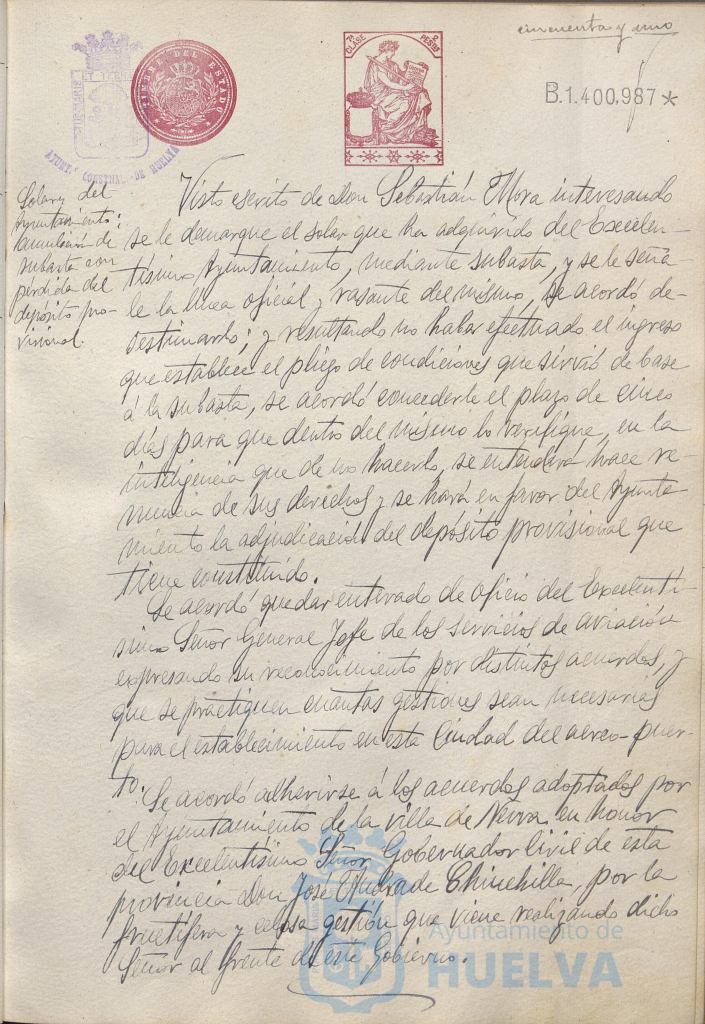 cincuenta y uno
TIMBRE DEL ESTADO
7ª CLASE
2 PESTAS
B.1.400,987*
AYUNTº CONSTNAL DE HUELVA
Solares del
Ayuntamiento:
anulación de
subasta con
pérdida del
depósito pro-
visional.
Visto escrito de Don Sebastián Mora interesando
se le demarque el solar que ha adquirido del Excelen-
tísimo Ayuntamiento, mediante subasta, y se le seña-
le la línea oficial y rasante del mismo, se acordó de-
sestimarlo; y resultando no haber efectuado el ingreso
que establece el pliego de condiciones que sirvió de base
á la subasta, se acordó concederle el plazo de cinco
días para que dentro del mismo lo verifique, en la
inteligencia que de no hacerlo, se entenderá hace re-
nuncia de sus derechos y se hará en favor del Ayunta
miento la adjudicación del depósito provisional que
tiene constituido.
Se acordó quedar enterado de oficio del Excelentí-
simo Señor General Jefe de los servicios de aviación
expresando su reconocimiento por distintos acuerdos, y
que se practiquen cuantas gestiones sean necesarias
para el establecimiento en esta Ciudad del aereo-puer-
to.
Se acordó adherirse á los acuerdos adoptados por
el Ayuntamiento de la villa de Nerva en honor
del Excelentísimo Señor Gobernador Civil de esta
provincia Don José Andrade Chinchilla, por la
fructífera y celosa gestión que viene realizando dicho
Señor al frente de este Gobierno.
Ayuntamiento de
HUELVA